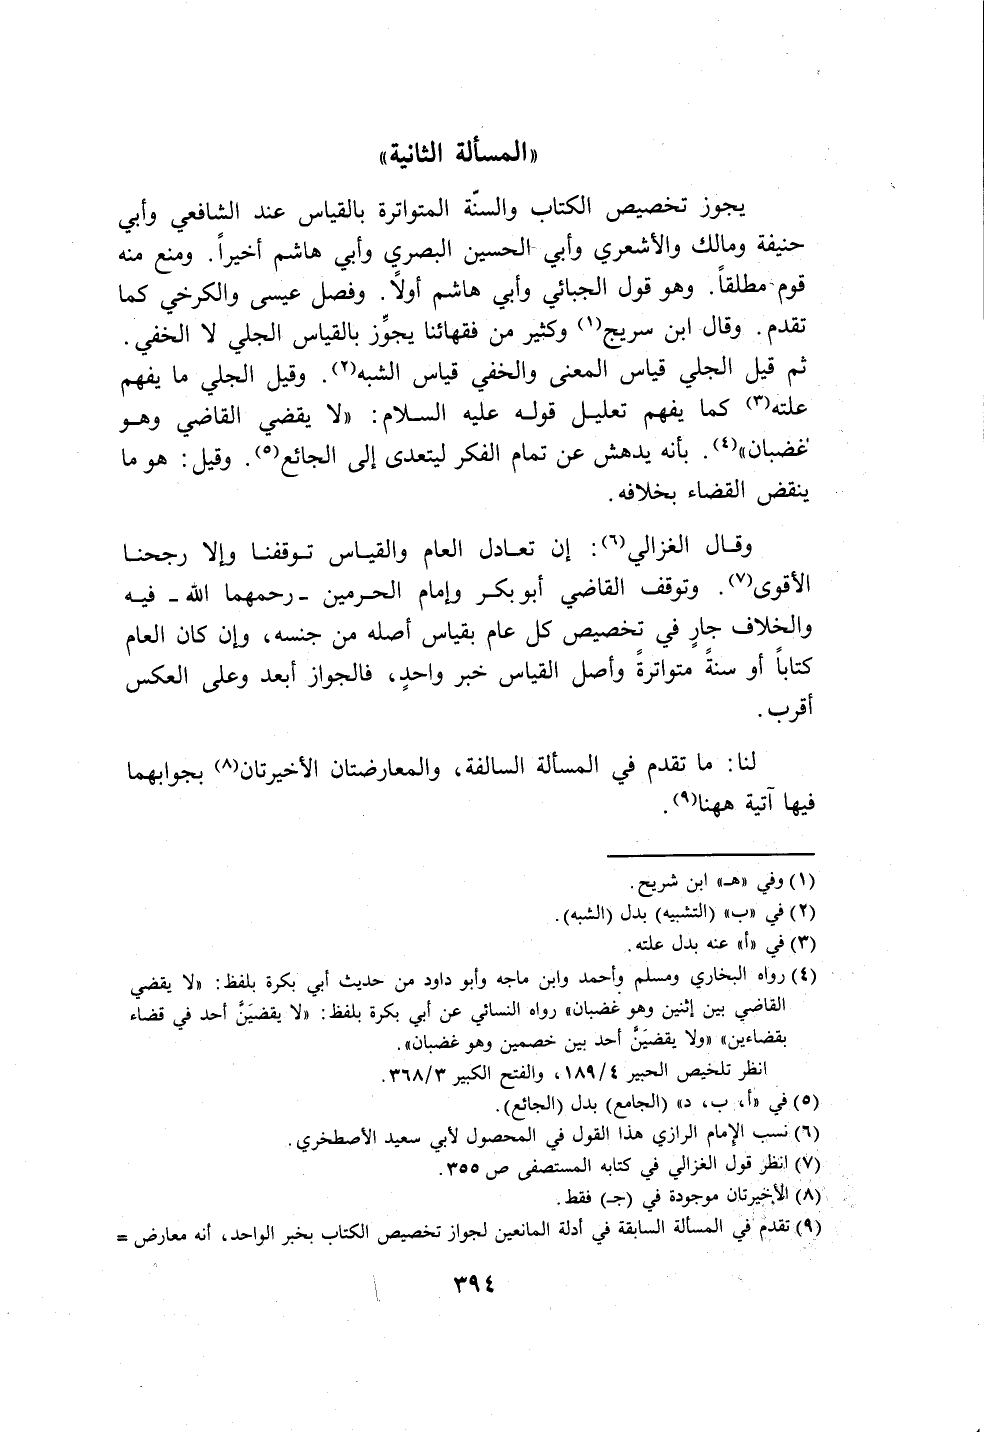 «المسألة الثانية»
يجوز تخصيص الكتاب والسنّة المتواترة بالقياس عند الشافعي وأبي
حنيفة ومالك والأشعري وأبي الحسين البصري وأبي هاشم أخيراً. ومنع منه
قوم مطلقاً. وهو قول الجبائي وأبي هاشم أولاً. وفصل عيسى والكرخي كما
تقدم. وقال ابن سريج(١) وكثير من فقهائنا يجوِّز بالقياس الجلي لا الخفي.
ثم قيل الجلي قياس المعنى والخفي قياس الشبه(٢). وقيل الجلي ما يفهم
علته(٣) كما يفهم تعليل قوله عليه السلام: «لا يقضي القاضي وهو
غضبان»(٤). بأنه يدهش عن تمام الفكر ليتعدى إلى الجائع(٥). وقيل: هو ما
ينقض القضاء بخلافه.
وقال الغزالي(٦): إن تعادل العام والقياس توقفنا وإلا رجحنا
الأقوى(٧). وتوقف القاضي أبو بكر وإمام الحرمين - رحمهما الله - فيه
والخلاف جارٍ في تخصيص كل عام بقياس أصله من جنسه، وإن كان العام
كتاباً أو سنةً متواترةً وأصل القياس خبر واحدٍ، فالجواز أبعد وعلى العكس
أقرب.
لنا: ما تقدم في المسألة السالفة، والمعارضتان الأخيرتان(٨) بجوابهما
فيها آتية ههنا(٩).
(١) وفي «هـ» ابن شريح.
(٢) في «ب» (التشبيه) بدل (الشبه).
(٣) في «أ» عنه بدل علته.
(٤) رواه البخاري ومسلم وأحمد وابن ماجه وأبو داود من حديث أبي بكرة بلفظ: «لا يقضي
القاضي بين إثنين وهو غضبان» رواه النسائي عن أبي بكرة بلفظ: «لا يقضيَنَّ أحد في قضاء
بقضاءين» «ولا يقضيَنَّ أحد بين خصمين وهو غضبان».
انظر تلخيص الحبير ١٨٩/٤، والفتح الكبير ٣٦٨/٣.
(٥) في «أ، ب، د» (الجامع) بدل (الجائع).
(٦) نسب الإمام الرازي هذا القول في المحصول لأبي سعيد الأصطخري.
(٧) انظر قول الغزالي في كتابه المستصفى ص ٣٥٥.
(٨) الأخيرتان موجودة في (جـ) فقط.
(٩) تقدم في المسألة السابقة في أدلة المانعين لجواز تخصيص الكتاب بخبر الواحد، أنه معارض =
٣٩٤